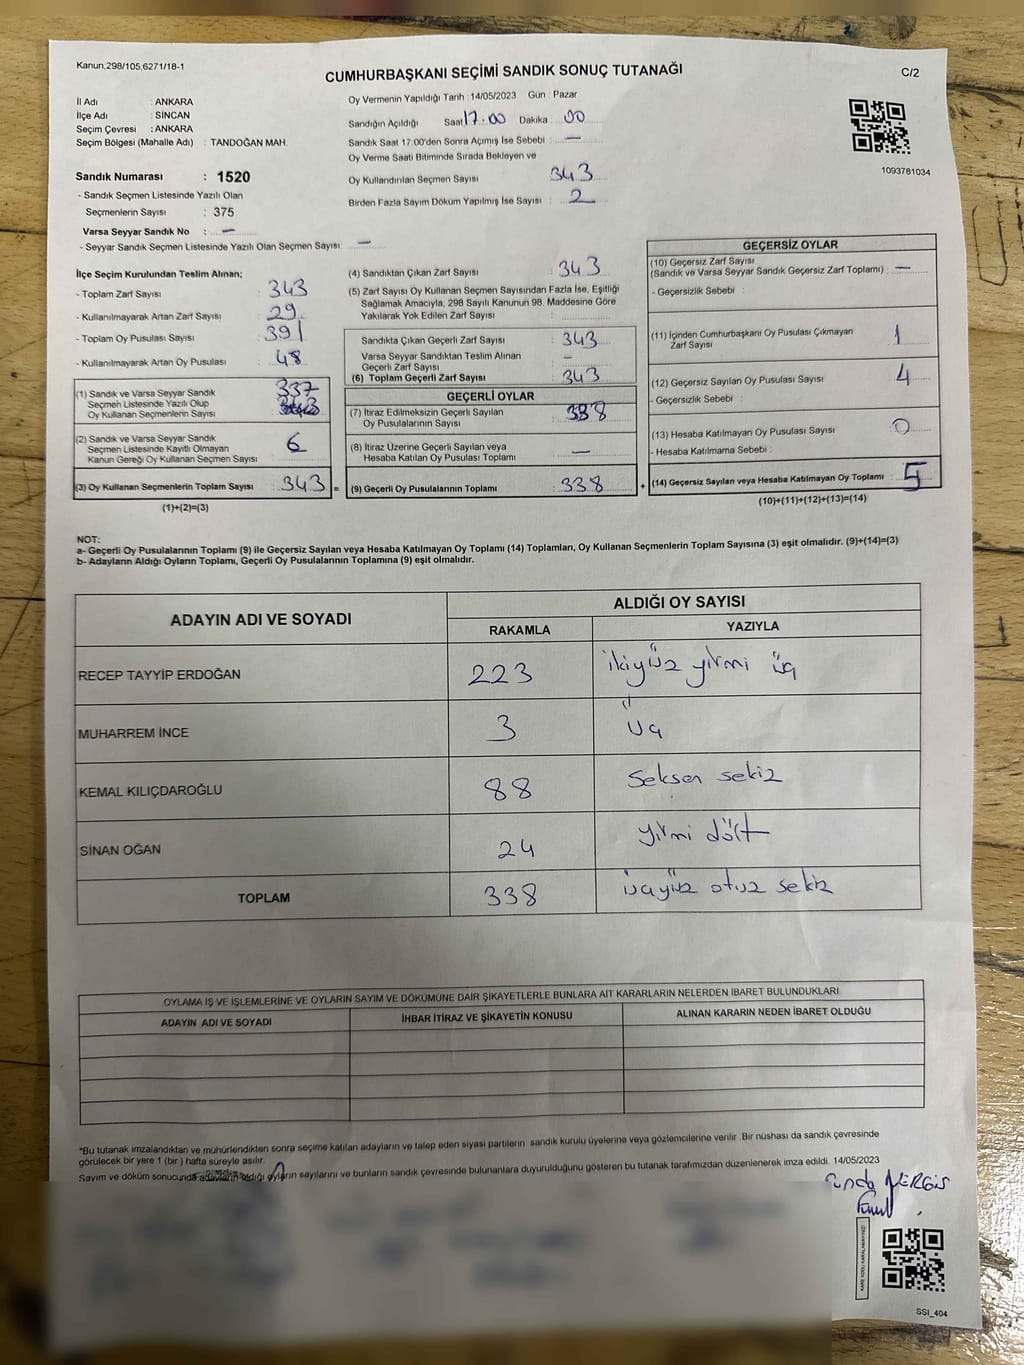 Kanun,298/105,6271/18-1
CUMHURBAŞKANI SEÇİMİ SANDIK SONUÇ TUTANAĞI
C/2
İl Adı : ANKARA
İlçe Adı : SİNCAN
Seçim Çevresi : ANKARA
Seçim Bölgesi (Mahalle Adı) : TANDOĞAN MAH.
Oy Vermenin Yapıldığı Tarih : 14/05/2023 Gün : Pazar
Sandığın Açıldığı Saat 17.00 Dakika : 00
Sandık Saat 17:00'den Sonra Açımış İse Sebebi : —
Oy Verme Saati Bitiminde Sırada Bekleyen ve
Oy Kullandırılan Seçmen Sayısı 343
Birden Fazla Sayım Döküm Yapılmış İse Sayısı : 2
1093781034
Sandık Numarası : 1520
- Sandık Seçmen Listesinde Yazılı Olan
Seçmenlerin Sayısı : 375
Varsa Seyyar Sandık No : —
- Seyyar Sandık Seçmen Listesinde Yazılı Olan Seçmen Sayısı: —
İlçe Seçim Kurulundan Teslim Alınan;
- Toplam Zarf Sayısı : 343
- Kullanılmayarak Artan Zarf Sayısı : 29
- Toplam Oy Pusulası Sayısı : 391
- Kullanılmayarak Artan Oy Pusulası : 48
(1) Sandık ve Varsa Seyyar Sandık
Seçmen Listesinde Yazılı Olup
Oy Kullanan Seçmenlerin Sayısı : 337
(2) Sandık ve Varsa Seyyar Sandık
Seçmen Listesinde Kayıtlı Olmayan
Kanun Gereği Oy Kullanan Seçmen Sayısı : 6
(3) Oy Kullanan Seçmenlerin Toplam Sayısı : 343 =
(1)+(2)=(3)
(4) Sandıktan Çıkan Zarf Sayısı : 343
(5) Zarf Sayısı Oy Kullanan Seçmen Sayısından Fazla İse, Eşitliği
Sağlamak Amacıyla, 298 Sayılı Kanunun 98. Maddesine Göre
Yakılarak Yok Edilen Zarf Sayısı :
Sandıkta Çıkan Geçerli Zarf Sayısı : 343
Varsa Seyyar Sandıktan Teslim Alınan
Geçerli Zarf Sayısı : —
(6) Toplam Geçerli Zarf Sayısı : 343
GEÇERLİ OYLAR
(7) İtiraz Edilmeksizin Geçerli Sayılan
Oy Pusulalarının Sayısı : 338
(8) İtiraz Üzerine Geçerli Sayılan veya
Hesaba Katılan Oy Pusulası Toplamı : —
(9) Geçerli Oy Pusulalarının Toplamı : 338 +
GEÇERSİZ OYLAR
(10) Geçersiz Zarf Sayısı
(Sandık ve Varsa Seyyar Sandık Geçersiz Zarf Toplamı) : —
- Geçersizlik Sebebi :
(11) İçinden Cumhurbaşkanı Oy Pusulası Çıkmayan
Zarf Sayısı : 1
(12) Geçersiz Sayılan Oy Pusulası Sayısı : 4
- Geçersizlik Sebebi :
(13) Hesaba Katılmayan Oy Pusulası Sayısı : 0
- Hesaba Katılmama Sebebi :
(14) Geçersiz Sayılan veya Hesaba Katılmayan Oy Toplamı : 5
(10)+(11)+(12)+(13)=(14)
NOT:
a- Geçerli Oy Pusulalarının Toplamı (9) ile Geçersiz Sayılan veya Hesaba Katılmayan Oy Toplamı (14) Toplamları, Oy Kullanan Seçmenlerin Toplam Sayısına (3) eşit olmalıdır. (9)+(14)=(3)
b- Adayların Aldığı Oyların Toplamı, Geçerli Oy Pusulalarının Toplamına (9) eşit olmalıdır.
ADAYIN ADI VE SOYADI
ALDIĞI OY SAYISI
RAKAMLA YAZIYLA
RECEP TAYYİP ERDOĞAN 223 ikiyüz yirmi üç
MUHARREM İNCE 3 üç
KEMAL KILIÇDAROĞLU 88 seksen sekiz
SİNAN OĞAN 24 yirmi dört
TOPLAM 338 üçyüz otuz sekiz
OYLAMA İŞ VE İŞLEMLERİNE VE OYLARIN SAYIM VE DÖKÜMÜNE DAİR ŞİKAYETLERLE BUNLARA AİT KARARLARIN NELERDEN İBARET BULUNDUKLARI
ADAYIN ADI VE SOYADI İHBAR İTİRAZ VE ŞİKAYETİN KONUSU ALINAN KARARIN NEDEN İBARET OLDUĞU
*Bu tutanak imzalandıktan ve mühürlendikten sonra seçime katılan adayların ve talep eden siyasi partilerin sandık kurulu üyelerine veya gözlemcilerine verilir .Bir nüshası da sandık çevresinde
görülecek bir yere 1 (bir ) hafta süreyle asılır.
Sayım ve döküm sonucunda adayların aldığı oyların sayılarını ve bunların sandık çevresinde bulunanlara duyurulduğunu gösteren bu tutanak tarafımızdan düzenlenerek imza edildi. 14/05/2023
KARE KODU KARALAMAYINIZ!
SSI_404